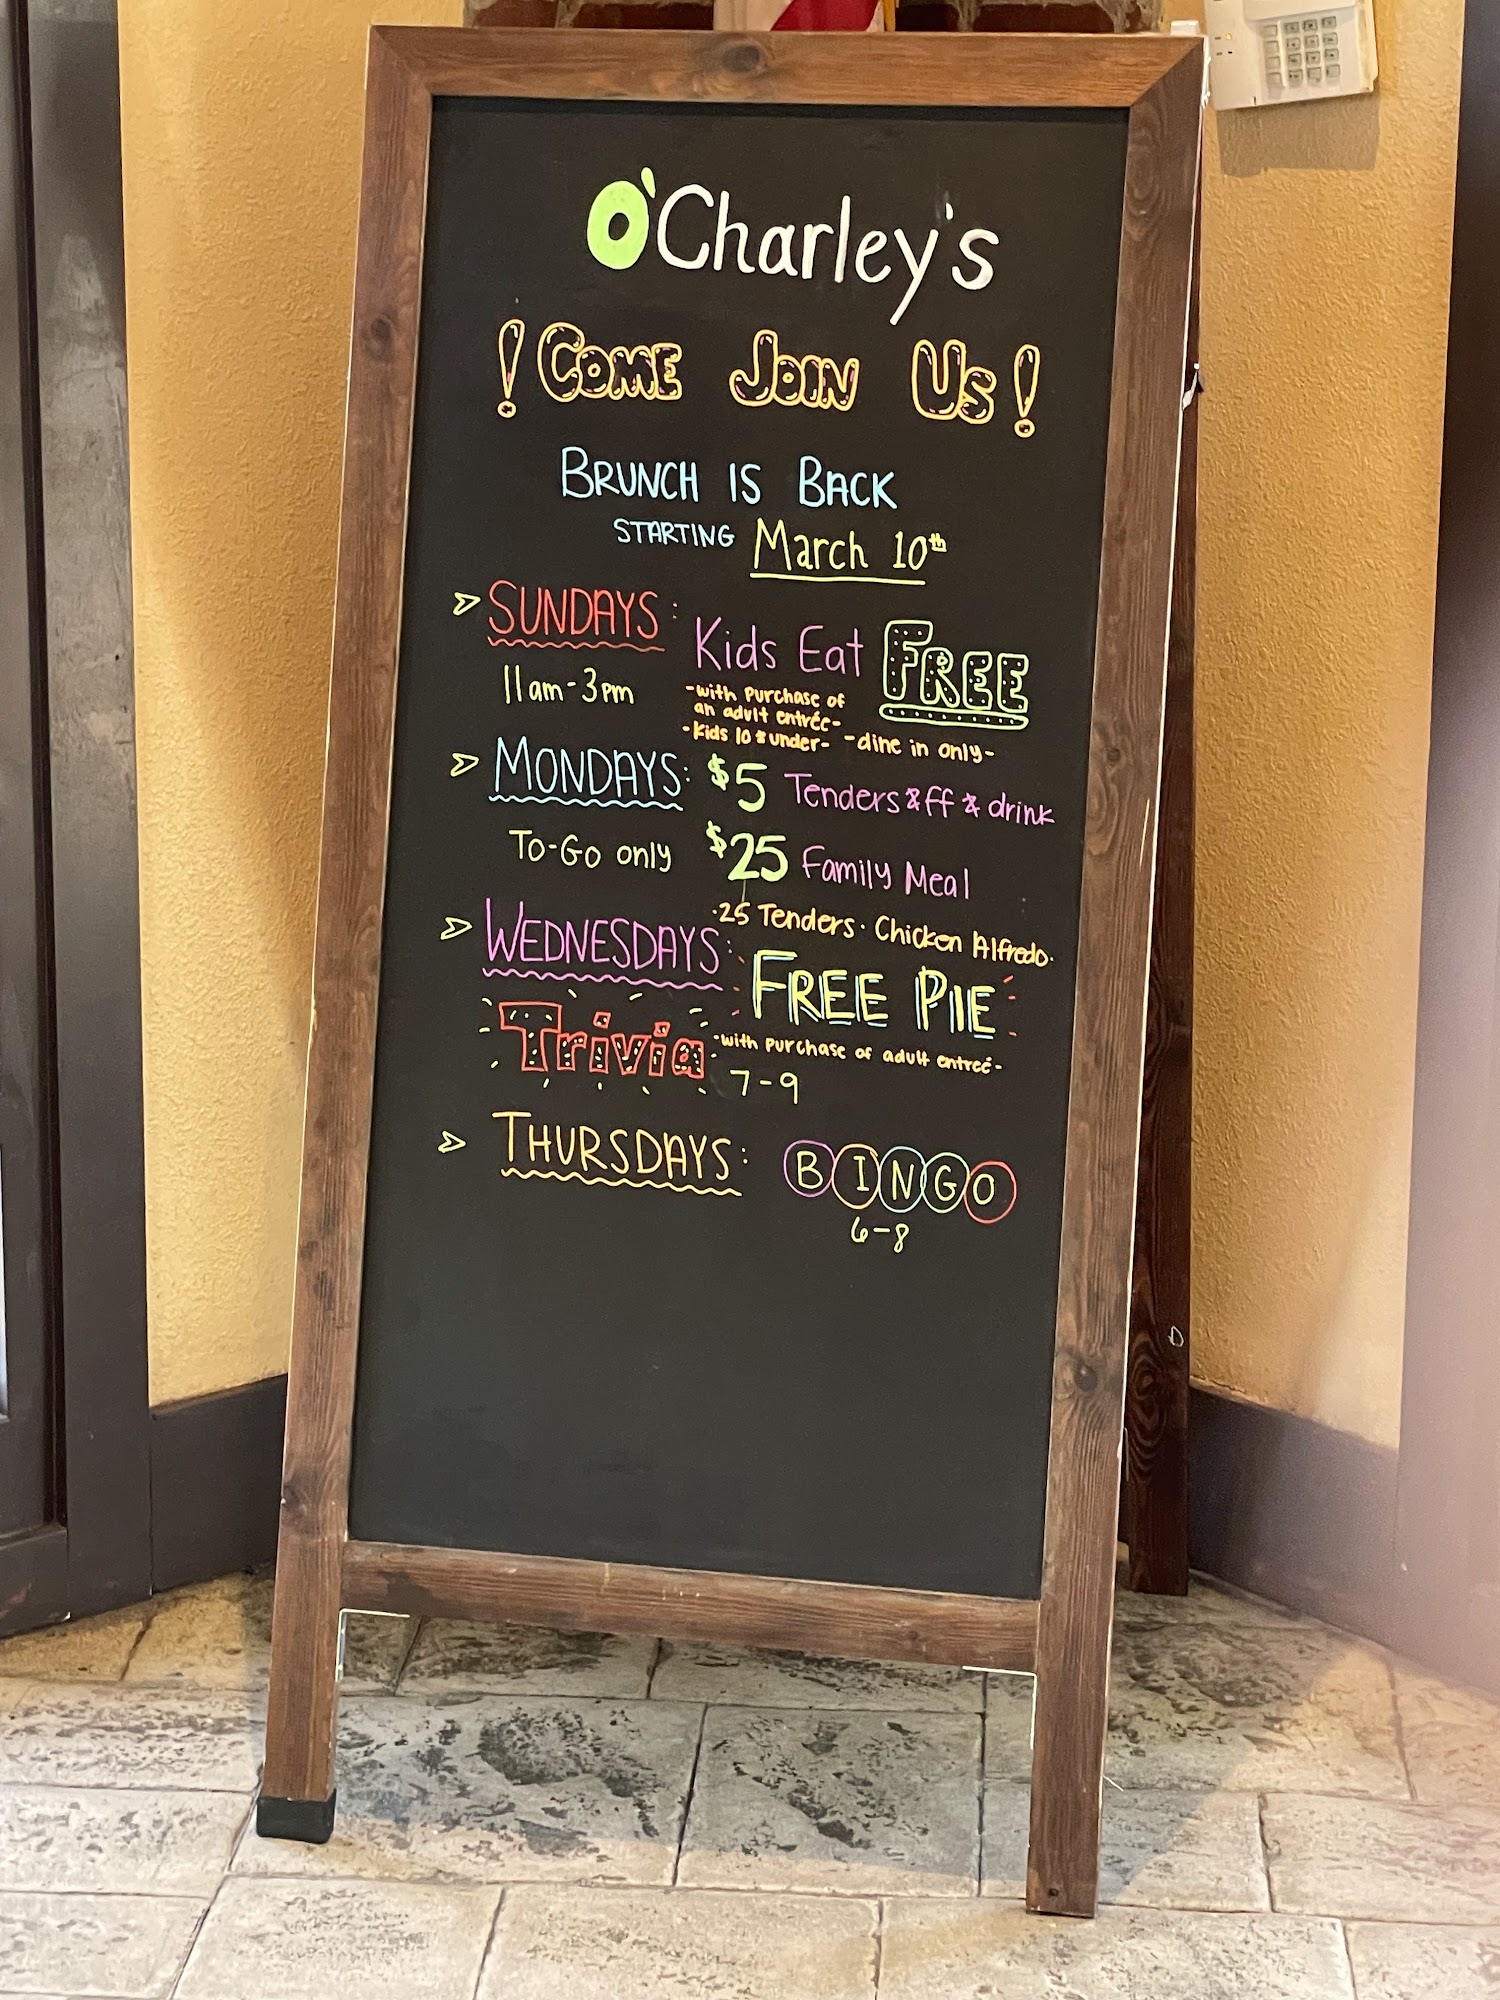 O'Charley's
! Come Join Us !
BRUNCH IS BACK
STARTING March 10th
SUNDAYS: Kids Eat FREE
11am-3pm
-with purchase of
an adult entrée-
-Kids 10 & under- -dine in only-
MONDAYS: $5 Tenders & ff & drink
To-Go only $25 Family Meal
·25 Tenders· Chicken Alfredo·
WEDNESDAYS: FREE PIE
Trivia -with purchase of adult entreé-
7-9
THURSDAYS: BINGO
6-8